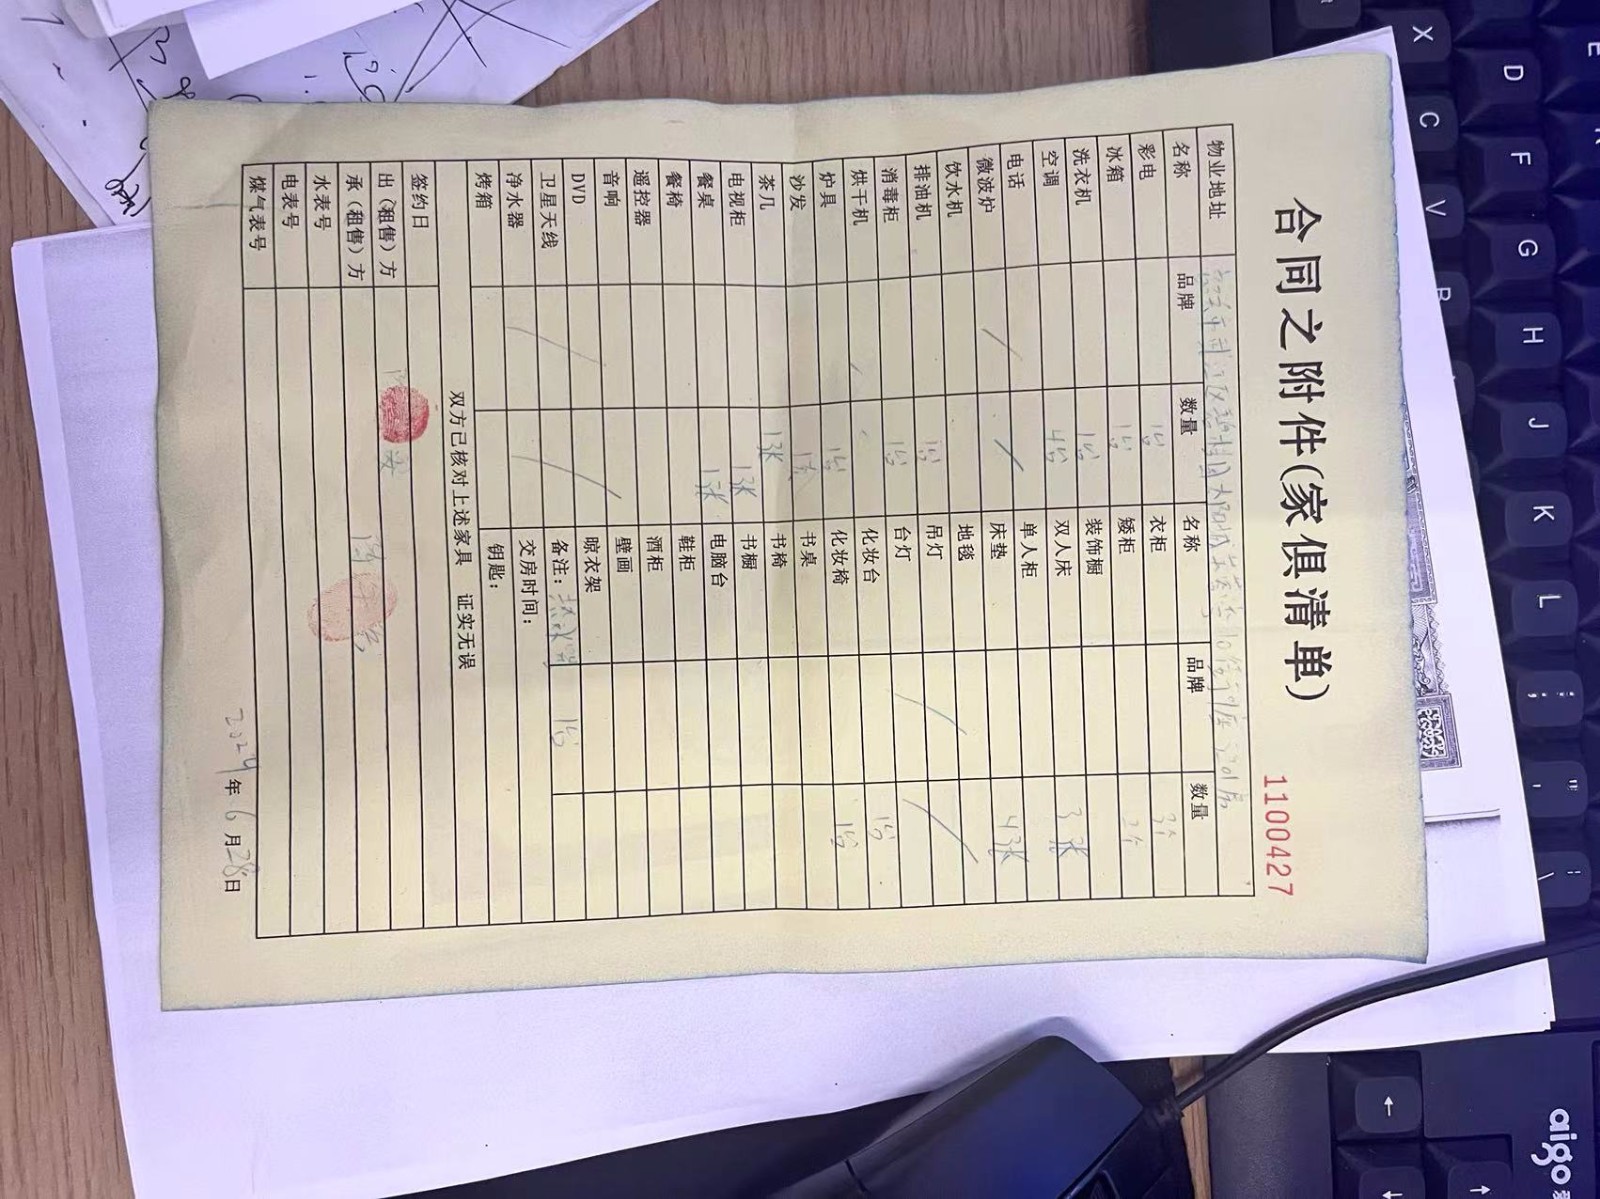 合同之附件(家俱清单)
1100427
物业地址
名称 品牌 数量 名称 品牌 数量
彩电 1台 衣柜 3个
冰箱 1台 矮柜 2个
洗衣机 1台 装饰橱
空调 4台 双人床 3张
电话 单人柜
微波炉 床垫 4张
饮水机 地毯
排油机 1台 吊灯
消毒柜 1台 台灯
烘干机 化妆台 1台
炉具 1台 化妆椅 1台
沙发 书桌
茶几 1张 书椅
电视柜 1张 书橱
餐桌 1张 电脑台
餐椅 鞋柜
遥控器 酒柜
音响 壁画
DVD 晾衣架
卫星天线 备注：热水器 1台
净水器 交房时间：
烤箱 钥匙：
双方已核对上述家具 证实无误
签约日
出(租售)方
承(租售)方
水表号
电表号
煤气表号
2024年6月28日
X
D
C
F
V
G
B
H
J
K
L
aigo